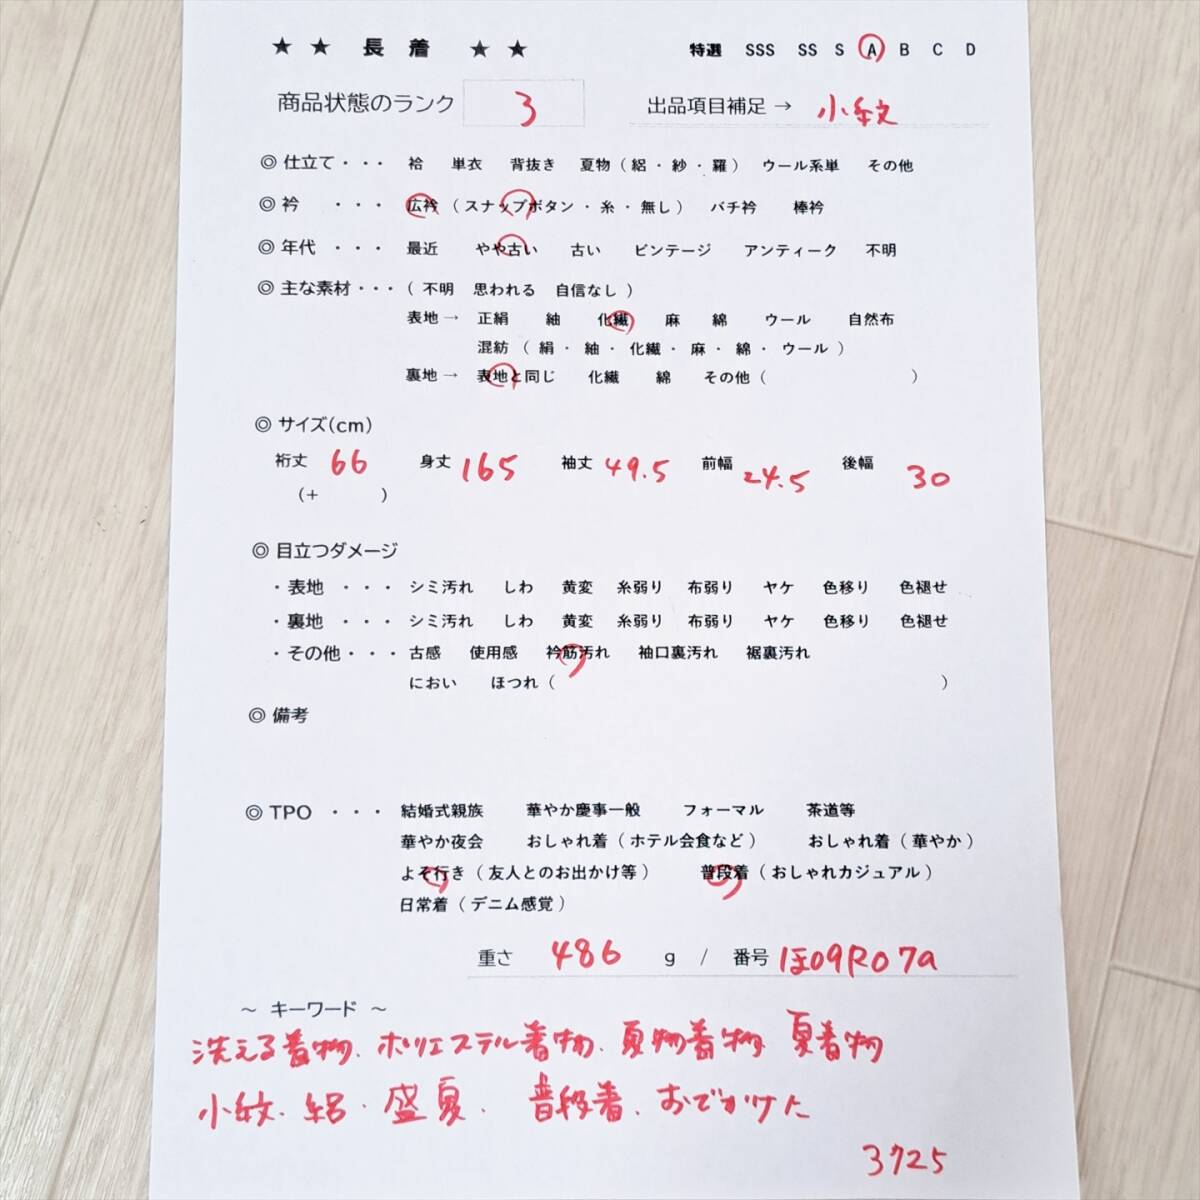 ★ ★ 長 着 ★ ★ 特選 SSS SS S A B C D
商品状態のランク 3 出品項目補足 → 小紋
◎ 仕立て・・・ 袷 単衣 背抜き 夏物(絽・紗・羅) ウール系単 その他
◎ 衿 ・・・ 広衿(スナップボタン・糸・無し) バチ衿 棒衿
◎ 年代 ・・・ 最近 やや古い 古い ビンテージ アンティーク 不明
◎ 主な素材・・・(不明 思われる 自信なし)
表地→ 正絹 紬 化繊 麻 綿 ウール 自然布
混紡(絹・紬・化繊・麻・綿・ウール)
裏地→ 表地と同じ 化繊 綿 その他( )
◎ サイズ(cm)
裄丈 66 身丈 165 袖丈 49.5 前幅 24.5 後幅 30
(+ )
◎ 目立つダメージ
・表地 ・・・ シミ汚れ しわ 黄変 糸弱り 布弱り ヤケ 色移り 色褪せ
・裏地 ・・・ シミ汚れ しわ 黄変 糸弱り 布弱り ヤケ 色移り 色褪せ
・その他・・・ 古感 使用感 衿筋汚れ 袖口裏汚れ 裾裏汚れ
におい ほつれ( )
◎ 備考
◎ TPO ・・・ 結婚式親族 華やか慶事一般 フォーマル 茶道等
華やか夜会 おしゃれ着(ホテル会食など) おしゃれ着(華やか)
よそ行き(友人とのお出かけ等) 普段着(おしゃれカジュアル)
日常着(デニム感覚)
重さ 486 g / 番号 ほ09R07a
~ キーワード ~
洗える着物、ポリエステル着物、夏物着物、夏着物
小紋、絽・盛夏、普段着、おでかけ
3725